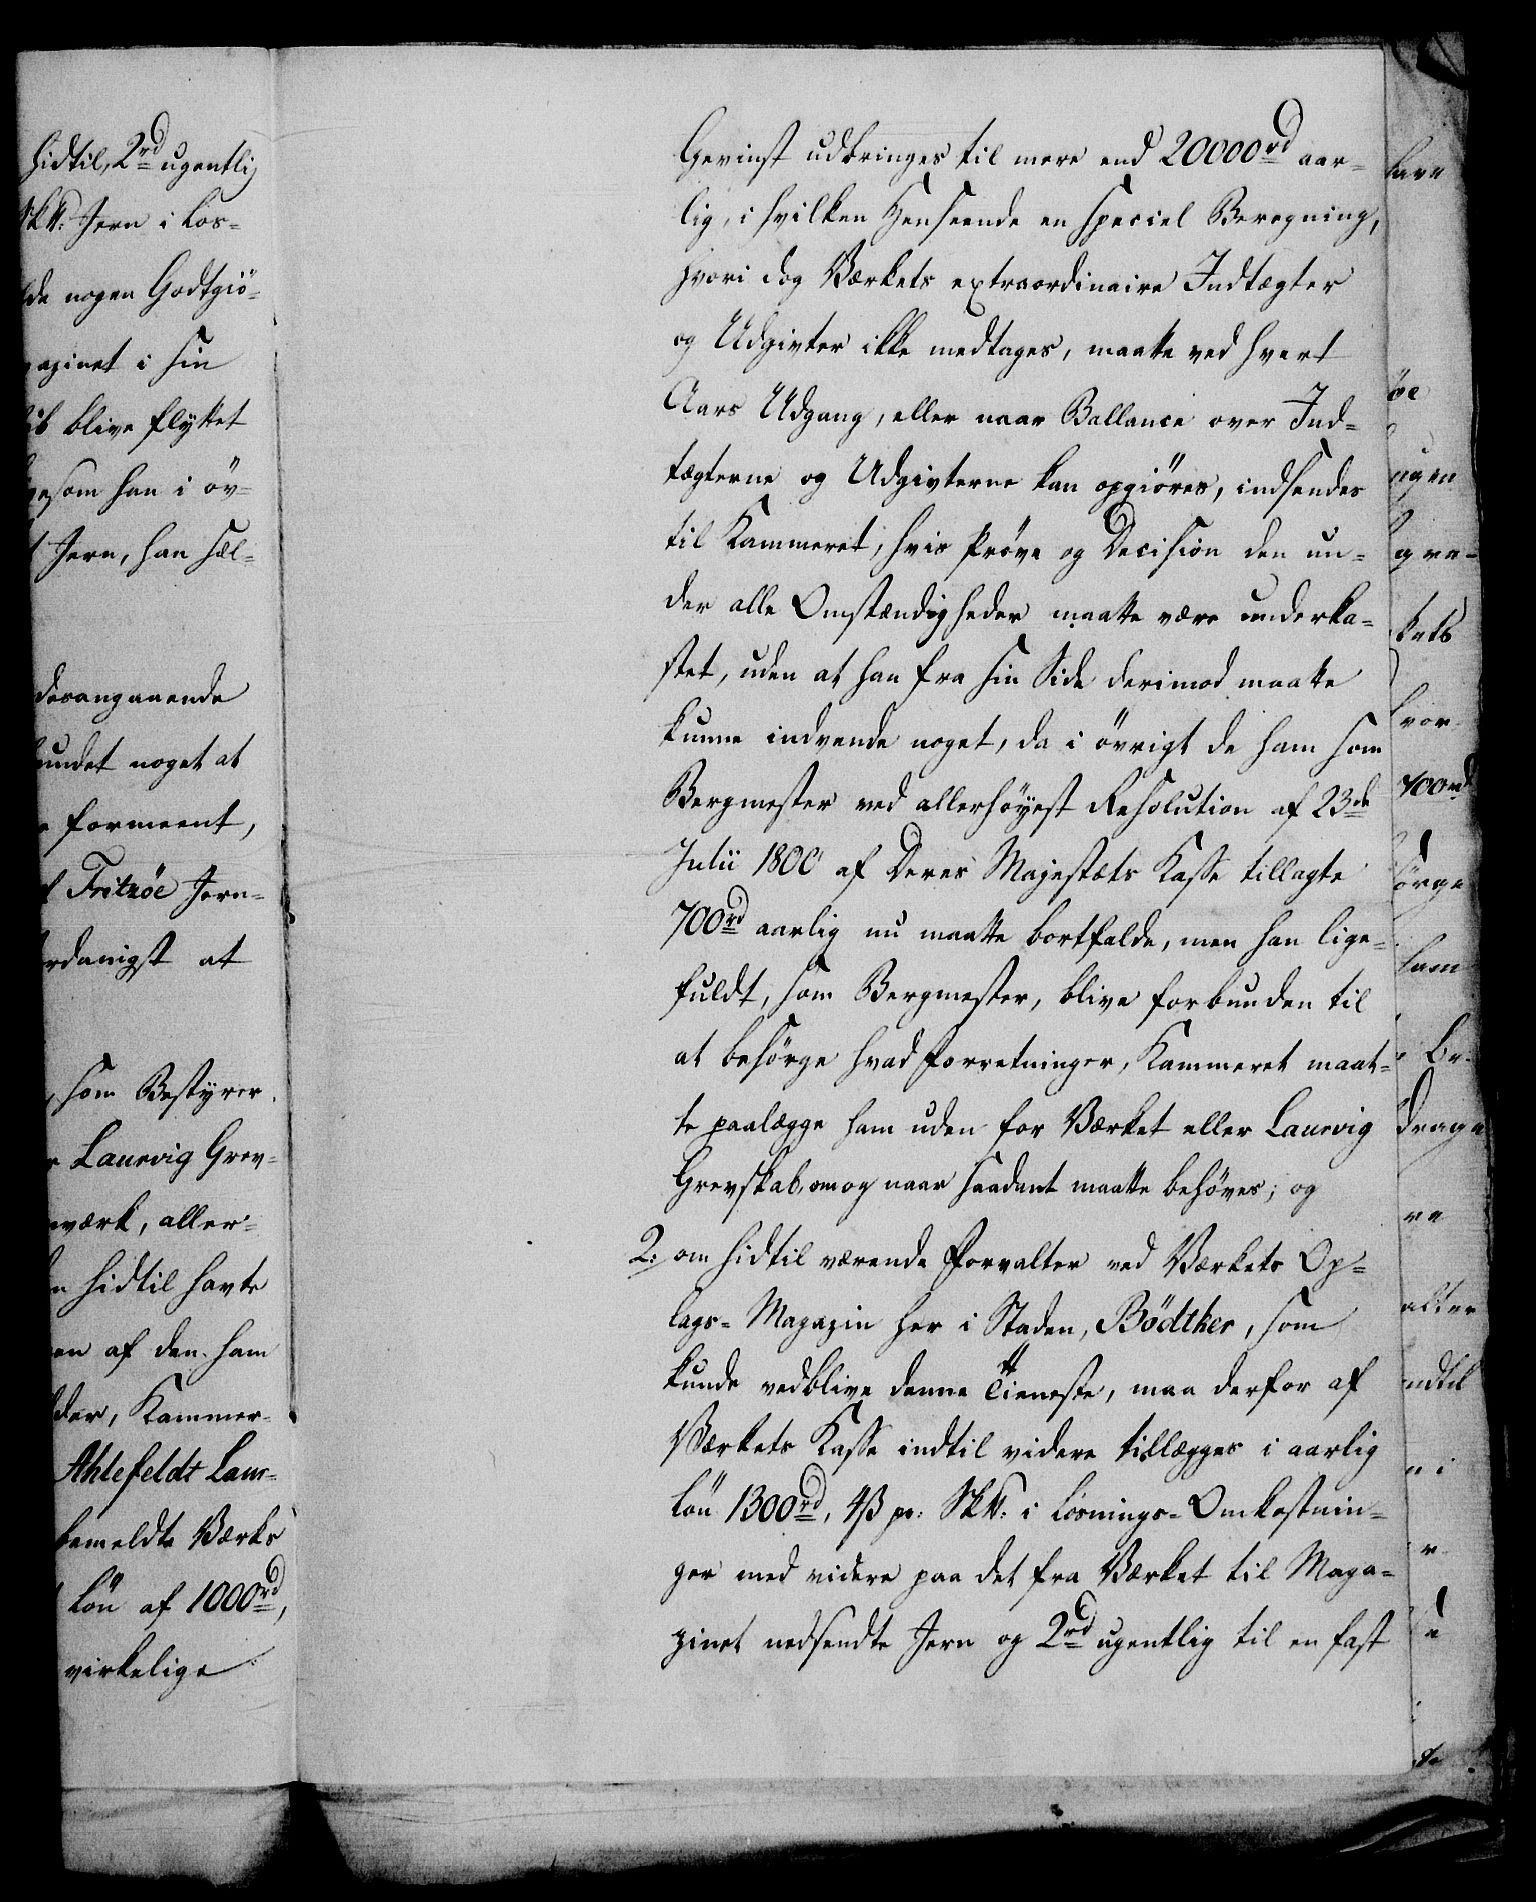 hidtil, 2rd ugentlig
Sk℔: Jern i Los-
nogen Godtgiö-
i sin
blive flyttet
som han i öv-
Jern, han sæl-
desangaaende
noget at
formeent,
Fritzöe Jern-
at
som Bestyrer
Laurvig Grev-
værk, aller-
hidtil havte
af den ham
Kammer-
Ahlefeldt Laur-
bemeldte Værks
Lön af 1000rd,
virkelige
Gevinst udbringes til mere end 20000rd aar-
lig, i hvilken Henseende en speciel Beregning,
hvori dog Værkets extraordinaire Indtægter
og Udgivter ikke medtages, maatte ved hvert
Aars Udgang, eller naar Ballance over Ind-
tægterne og Udgivterne kan opgiöres, indsendes
til Kammeret, hvis Pröve og Decision den un-
der alle Omstændigheder maatte være underka-
stet, uden at han fra sin Side derimod maatte
kunne indvende noget, da i övrigt de ham som
Bergmester ved allerhöyest Resolution af 23de
Julii 1800 af Deres Majestæts Kasse tillagte
700rd aarlig nu maatte bortfalde, men han lige-
fuldt, som Bergmester, blive forbunden til
at besörge hvad Forretninger, Kammeret maat-
te paalægge ham uden for Værket eller Laurvig
Grevskab, om og naar saadant maatte behöves; og
2: om hidtil værende Forvalter ved Værkets Op-
lags-Magazin her i Staden, Bödtker, som
kunde vedblive denne Tieneste, maa derfor af
Værkets Kasse indtil videre tillægges i aarlig
Lön 1300rd, 4ß pr: Sk℔: i Losnings-Omkostnin-
ger med videre paa det fra Værket til Maga-
zinet nedsendte Jern og 2rd ugentlig til en fast
öe
ugen
hvor
700rd
sörge
ham
Be-
drage
indtil
i